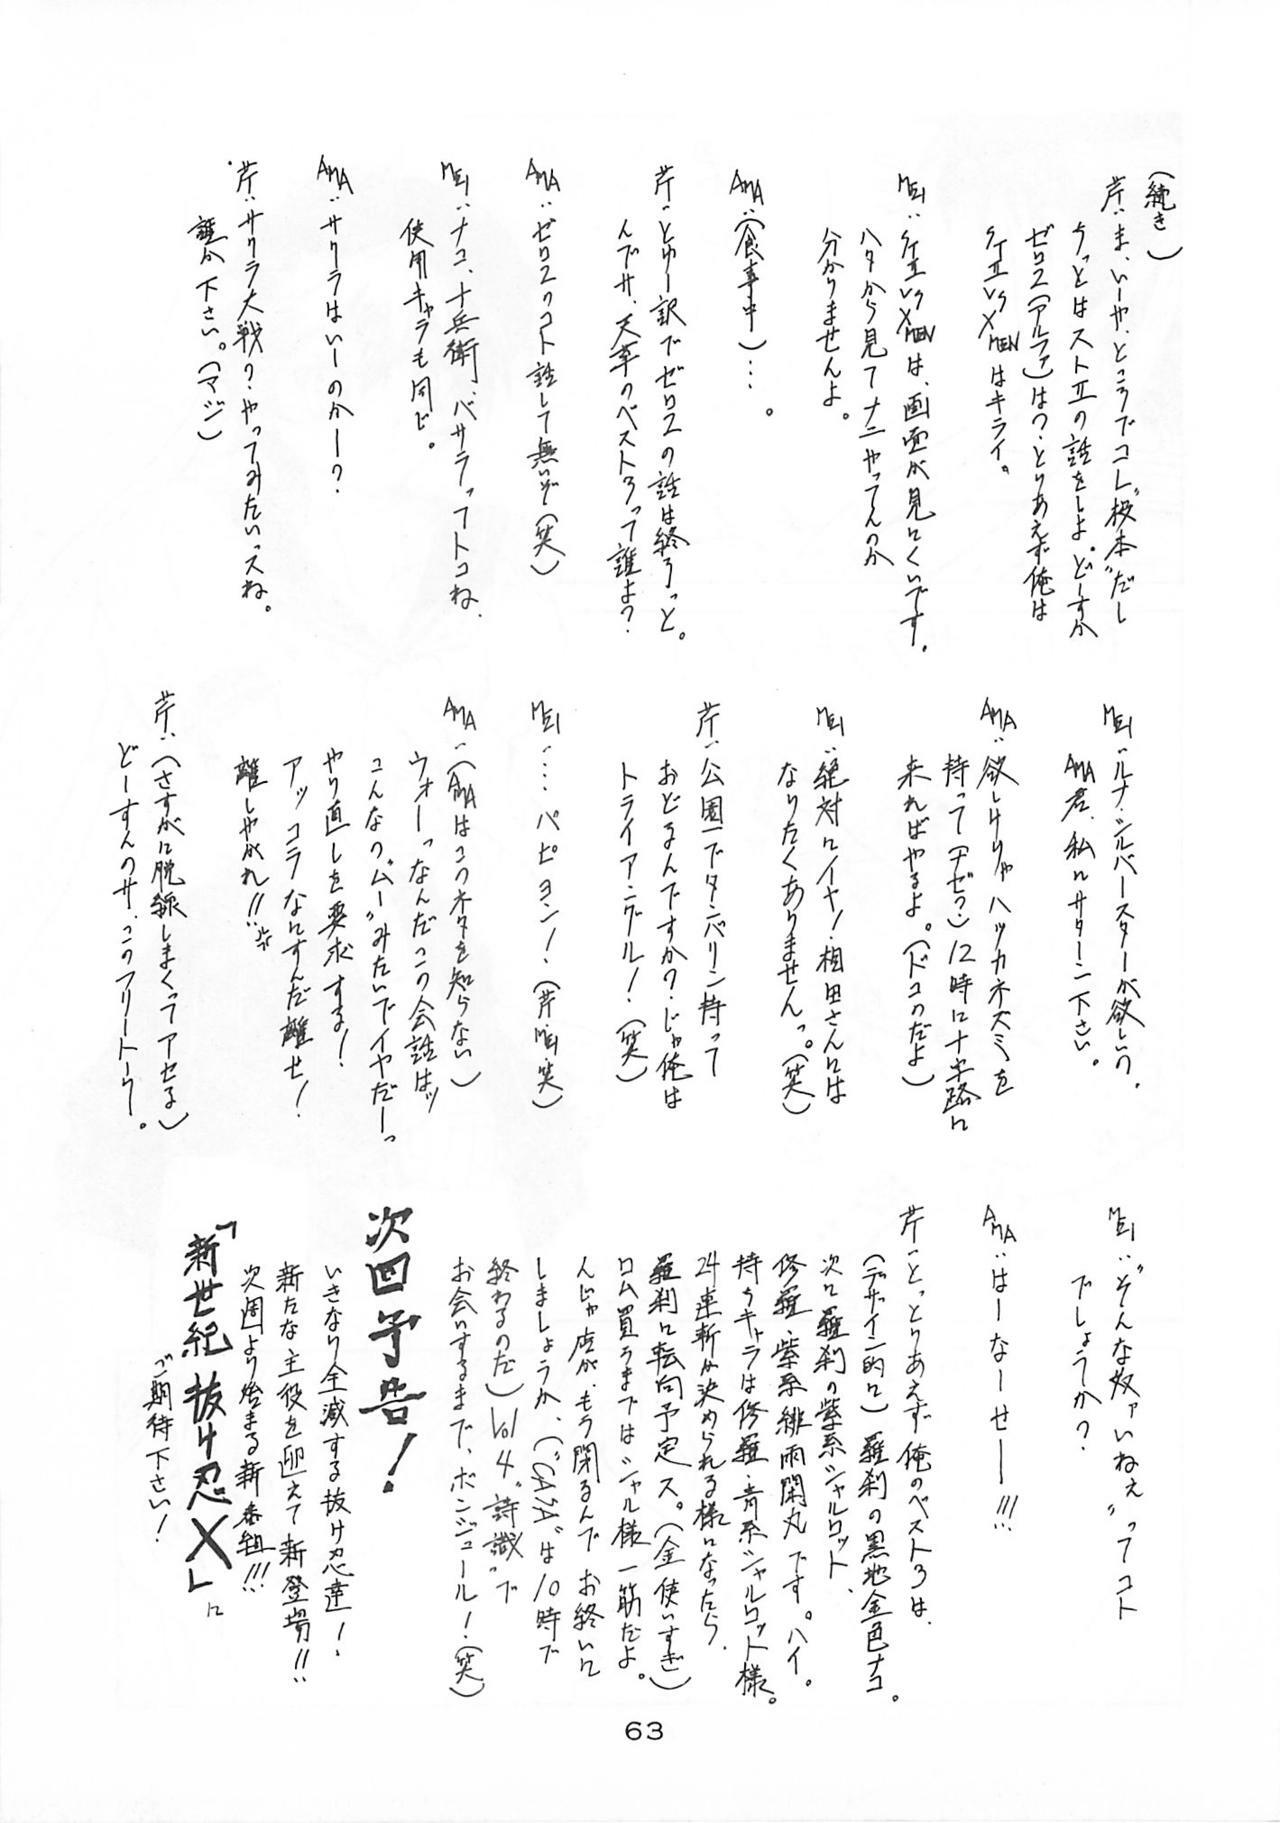 （続き）
芹：ま、いーや、ところでコレ"桜本"だし
ちっとはストⅡの話をしよ。どーすか
ゼロ2（アルファ）は?・とりあえず俺は
ケⅡVSX MENはキライ。
MEI：ケⅡVSXMENは、画面が見にくいです。
ハタから見てナニやってんのか
分かりませんよ。
AMA：（食事中）…。
芹：とゆー訳でゼロ2の話は終ろっと。
んでサ、天草のベスト3って誰よ?
AMA：ゼロ2のコト話して無いぞ（笑）
MEI：ナコ、十兵衛、バサラってトコね、
使用キャラも同じ。
AMA：サクラはいーのかー?
芹：サクラ大戦?・やってみたいっスね。
誰か下さい。（マジ）
MEI：ルナ・シルバースターが欲しいの、
AMA君、私にサターン下さい。
AMA：欲しけりゃハツカネズミを
持って（ナゼ?）12時に十字路に
来ればやるよ。（ドコのだよ）
MEI：絶対にイヤ!・相田さんには
なりたくありませんっ。（笑）
芹：公園でタンバリン持って
おどるんですか?・じゃ俺は
トライアングル!（笑）
MEI：…パピヨン!（芹・MEI・笑）
AMA：（AMAはこのネタを知らない）
ウォーっなんだこの会話はッ
こんなの"ムー"みたいでイヤだーっ
やり直しを要求する!
アッコラなにすんだ離せ!
離しやがれ!!
芹：（さすがに脱線しまくってアセる）
どーすんのサ、このフリートーク。
MEI："そんな奴ァいねぇ"ってコト
でしょうか?
AMA：はーなーせー!!!
芹：とっとりあえず俺のベスト3は、
（デザイン的に）羅刹の黒地金色ナコ。
次に羅刹の紫系シャルロット、
修羅・紫系緋雨閑丸です。ハイ。
持ちキャラは修羅・青系シャルロット様。
24連斬が決められる様になったら、
羅刹に転向予定ス。（金使いすぎ）
ロム買うまではシャル様一筋だよ。
んじゃ店が、もう閉るんでお終いに
しましょうか、（"CASA"は10時で
終わるのだ）Vol 4."詩識"で
お会いするまで、ボンジュール!（笑）
次回予告!
いきなり全滅する抜け忍達!
新たな主役を迎えて新登場!!
次週より始まる新番組!!!
「新世紀 抜け忍X」に
ご期待下さい!
63